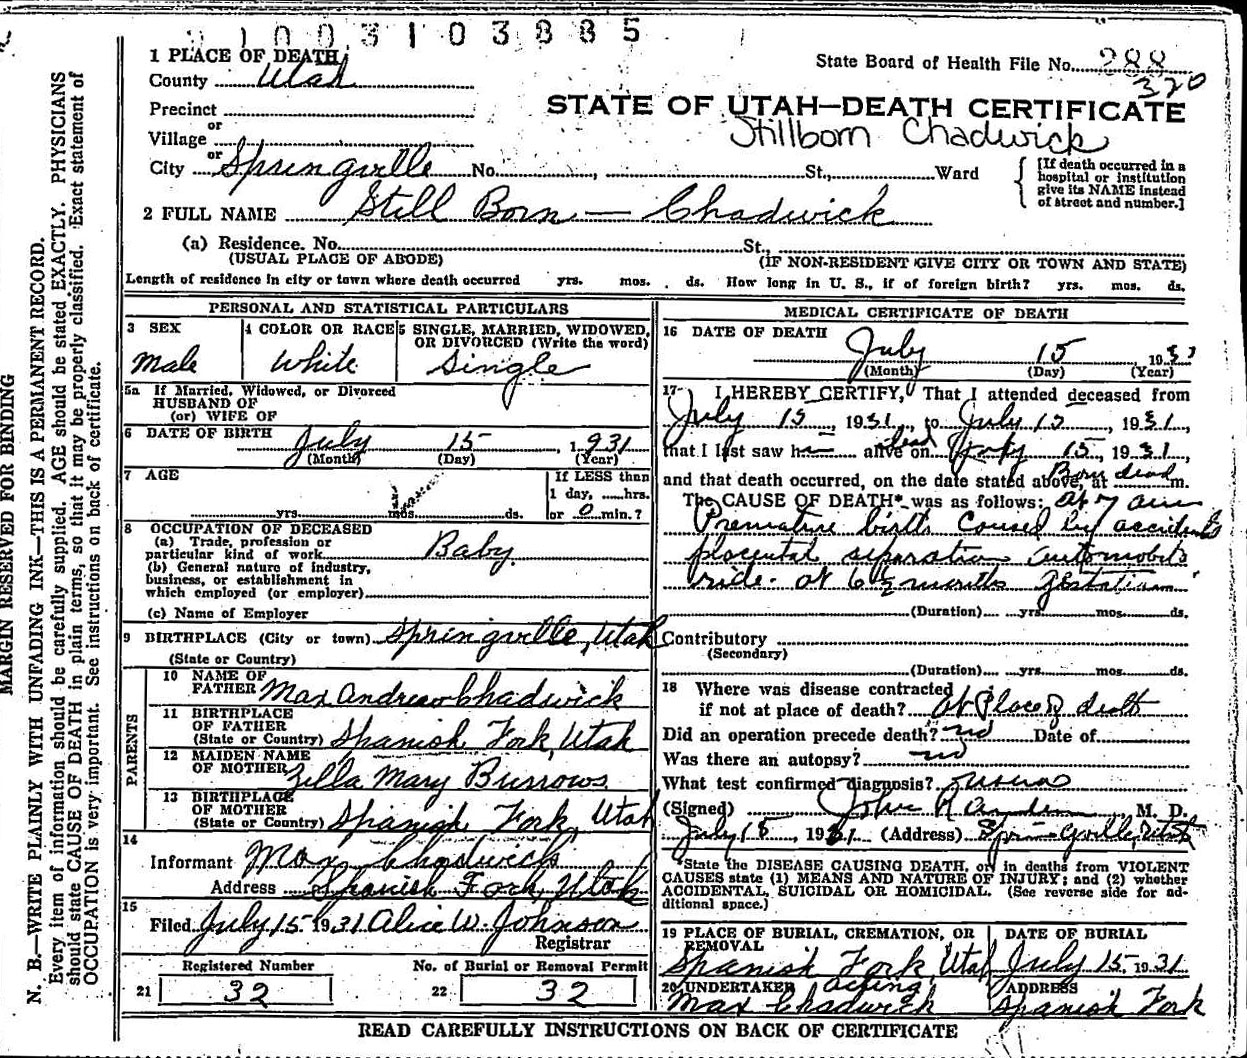 1003103885
1 PLACE OF DEATH
State Board of Health File No. 288
320
County Utah
Precinct
STATE OF UTAH—DEATH CERTIFICATE
or
Village
Stillborn Chadwick
or
City Springville No. , St., Ward
[If death occurred in a
hospital or institution
give its NAME instead
of street and number.]
2 FULL NAME Still Born — Chadwick
(a) Residence. No. St.,
(USUAL PLACE OF ABODE) (IF NON-RESIDENT GIVE CITY OR TOWN AND STATE)
Length of residence in city or town where death occurred yrs. mos. ds. How long in U. S., if of foreign birth? yrs. mos. ds.
PERSONAL AND STATISTICAL PARTICULARS
3 SEX 4 COLOR OR RACE 5 SINGLE, MARRIED, WIDOWED,
OR DIVORCED (Write the word)
Male White Single
5a If Married, Widowed, or Divorced
HUSBAND OF
(or) WIFE OF
6 DATE OF BIRTH July 15, 1931
(Month) (Day) (Year)
7 AGE If LESS than
1 day, hrs.
yrs. mos. ds. or 0 min.?
8 OCCUPATION OF DECEASED
(a) Trade, profession or
particular kind of work Baby
(b) General nature of industry,
business, or establishment in
which employed (or employer)
(c) Name of Employer
9 BIRTHPLACE (City or town) Springville, Utah
(State or Country)
PARENTS
10 NAME OF
FATHER Max Andrew Chadwick
11 BIRTHPLACE
OF FATHER
(State or Country) Spanish Fork, Utah
12 MAIDEN NAME
OF MOTHER Zella Mary Burrows
13 BIRTHPLACE
OF MOTHER
(State or Country) Spanish Fork, Utah
14
Informant Max Chadwick
Address Spanish Fork, Utah
15
Filed July 15 1931 Alice W. Johnson
Registrar
Registered Number No. of Burial or Removal Permit
21 32 22 32
MEDICAL CERTIFICATE OF DEATH
16 DATE OF DEATH
July 15, 1931
(Month) (Day) (Year)
17 I HEREBY CERTIFY, That I attended deceased from
July 15, 1931, to July 15, 1931,
that I last saw h alive dead on July 15, 1931,
and that death occurred, on the date stated above, at Born dead m.
The CAUSE OF DEATH* was as follows: at 7 am
Premature birth caused by accidental
placental separation automobile
ride. at 6½ months gestation
(Duration) yrs. mos. ds.
Contributory
(Secondary)
(Duration) yrs. mos. ds.
18 Where was disease contracted
if not at place of death? At Place of death
Did an operation precede death? no Date of
Was there an autopsy? no
What test confirmed diagnosis?
(Signed) M. D.
July 15, 1931 (Address) Springville, Utah
*State the DISEASE CAUSING DEATH, or in deaths from VIOLENT
CAUSES state (1) MEANS AND NATURE OF INJURY; and (2) whether
ACCIDENTAL, SUICIDAL OR HOMICIDAL. (See reverse side for ad-
ditional space.)
19 PLACE OF BURIAL, CREMATION, OR
REMOVAL
DATE OF BURIAL
Spanish Fork, Utah July 15 1931
20 UNDERTAKER acting ADDRESS
Max Chadwick Spanish Fork
READ CAREFULLY INSTRUCTIONS ON BACK OF CERTIFICATE
MARGIN RESERVED FOR BINDING
N. B.—WRITE PLAINLY WITH UNFADING INK—THIS IS A PERMANENT RECORD.
Every item of information should be carefully supplied. AGE should be stated EXACTLY. PHYSICIANS
should state CAUSE OF DEATH in plain terms, so that it may be properly classified. Exact statement of
OCCUPATION is very important. See instructions on back of certificate.